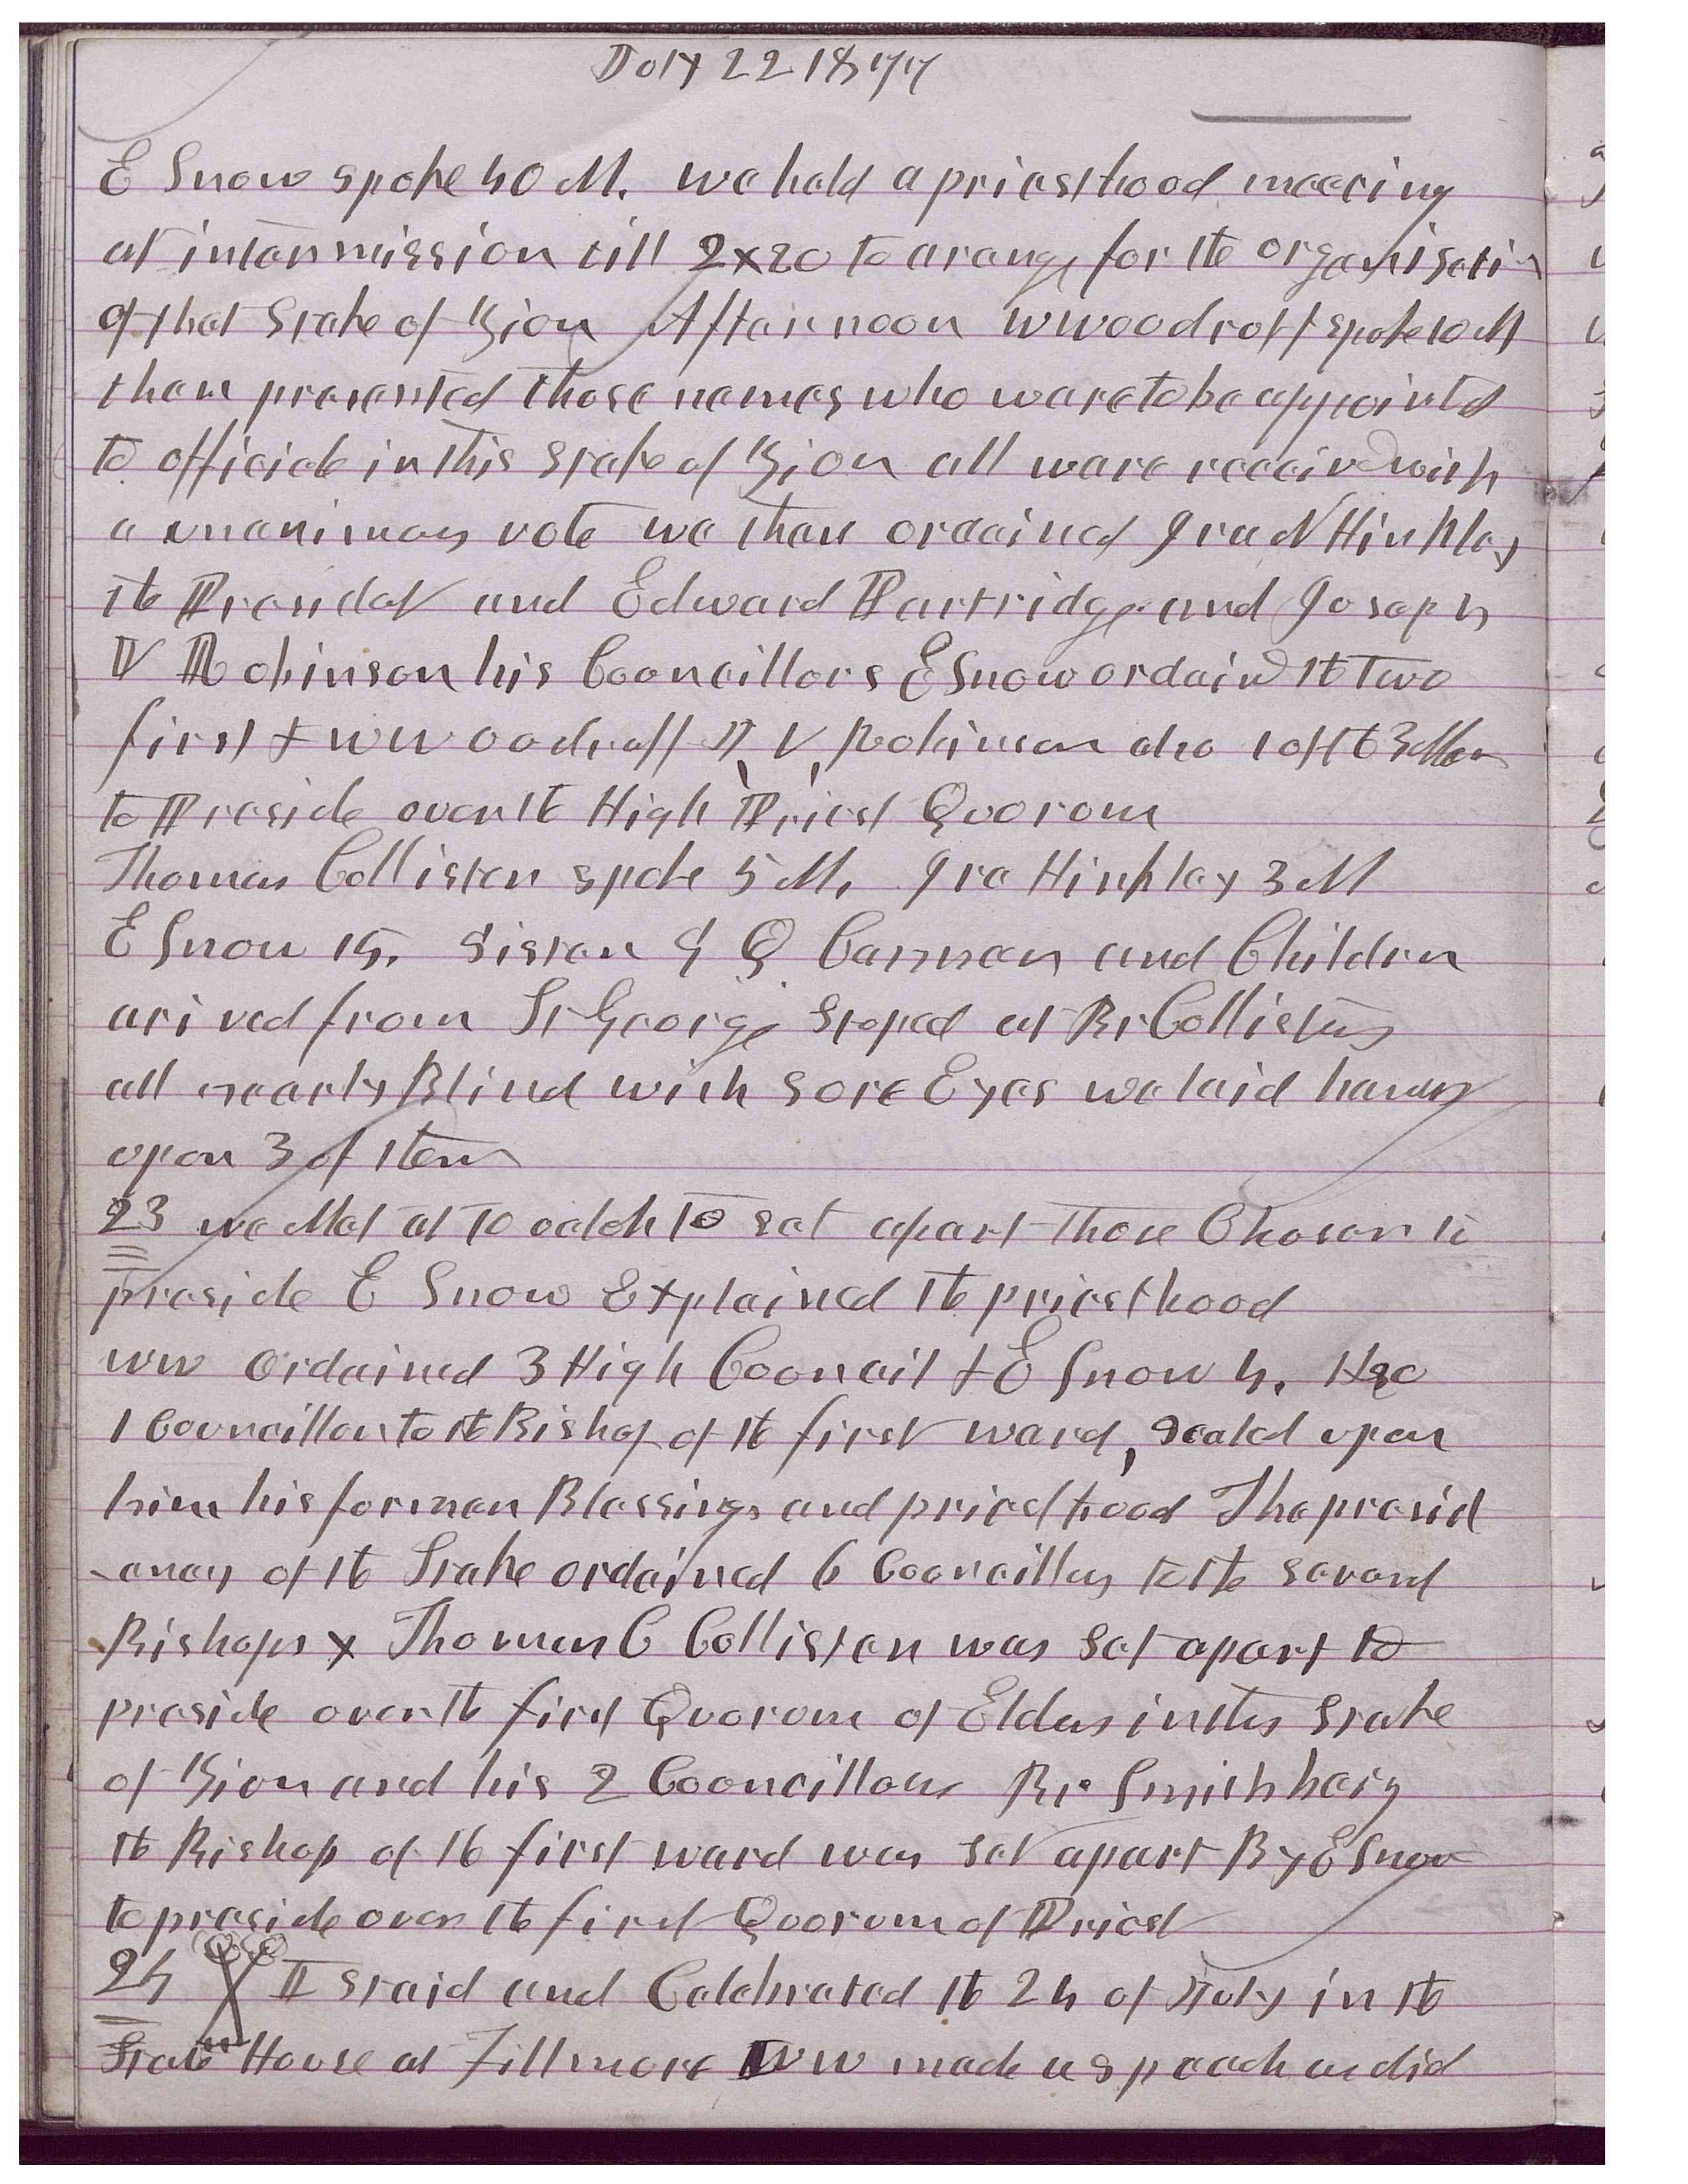 July 22 1877
E Snow spoke 40 M. we held a priesthood meeting
at intermission till 2x20 to arange for the organisatin
of that Stake of Zion Afternoon W Woodruff spoke 10 M
then presented those names who were to be appointed
to officiate in this Stake of Zion all ware receivd with
a unanimous vote we then ordained Ira N Hinkley
the Presidet and Edward Partridge and Joseph
V Robinson his Councillors E Snow ordaind the two
first & W Woodruff J, V, Robinson also 1 of the 3 Men
to Preside over the High Priest Quorom
Thomas Callister spoke 5 M, Ira Hinkley 3 M
E Snow 15. Sister G Q Cannon and Children
arived from St George Stoped at Br Callisters
all nearly Blind with Sore Eyes we laid hands
upon 3 of them
23 we Met at 10 oclok to set apart those Chosen to
preside E Snow Explained the priesthood
WW Ordained 3 High Council & E Snow 4.
1 Councillor to the Bishop of the first ward, Sealed upon
him his former Blessings and priesthood The presid
-ency of the Stake ordained 6 Councillors to the several
Bishops & Thomas C Callister was Set apart to
preside over the first Quorom of Elders in the Stake
of Zion and his 2 Councillors Br Smith being
the Bishop of the first ward was Set apart By E Snow
to preside over the first Quorum of Priest
24 I Staid and Celebrated the 24 of July in the
State House at Fillmore WW made a speech as did